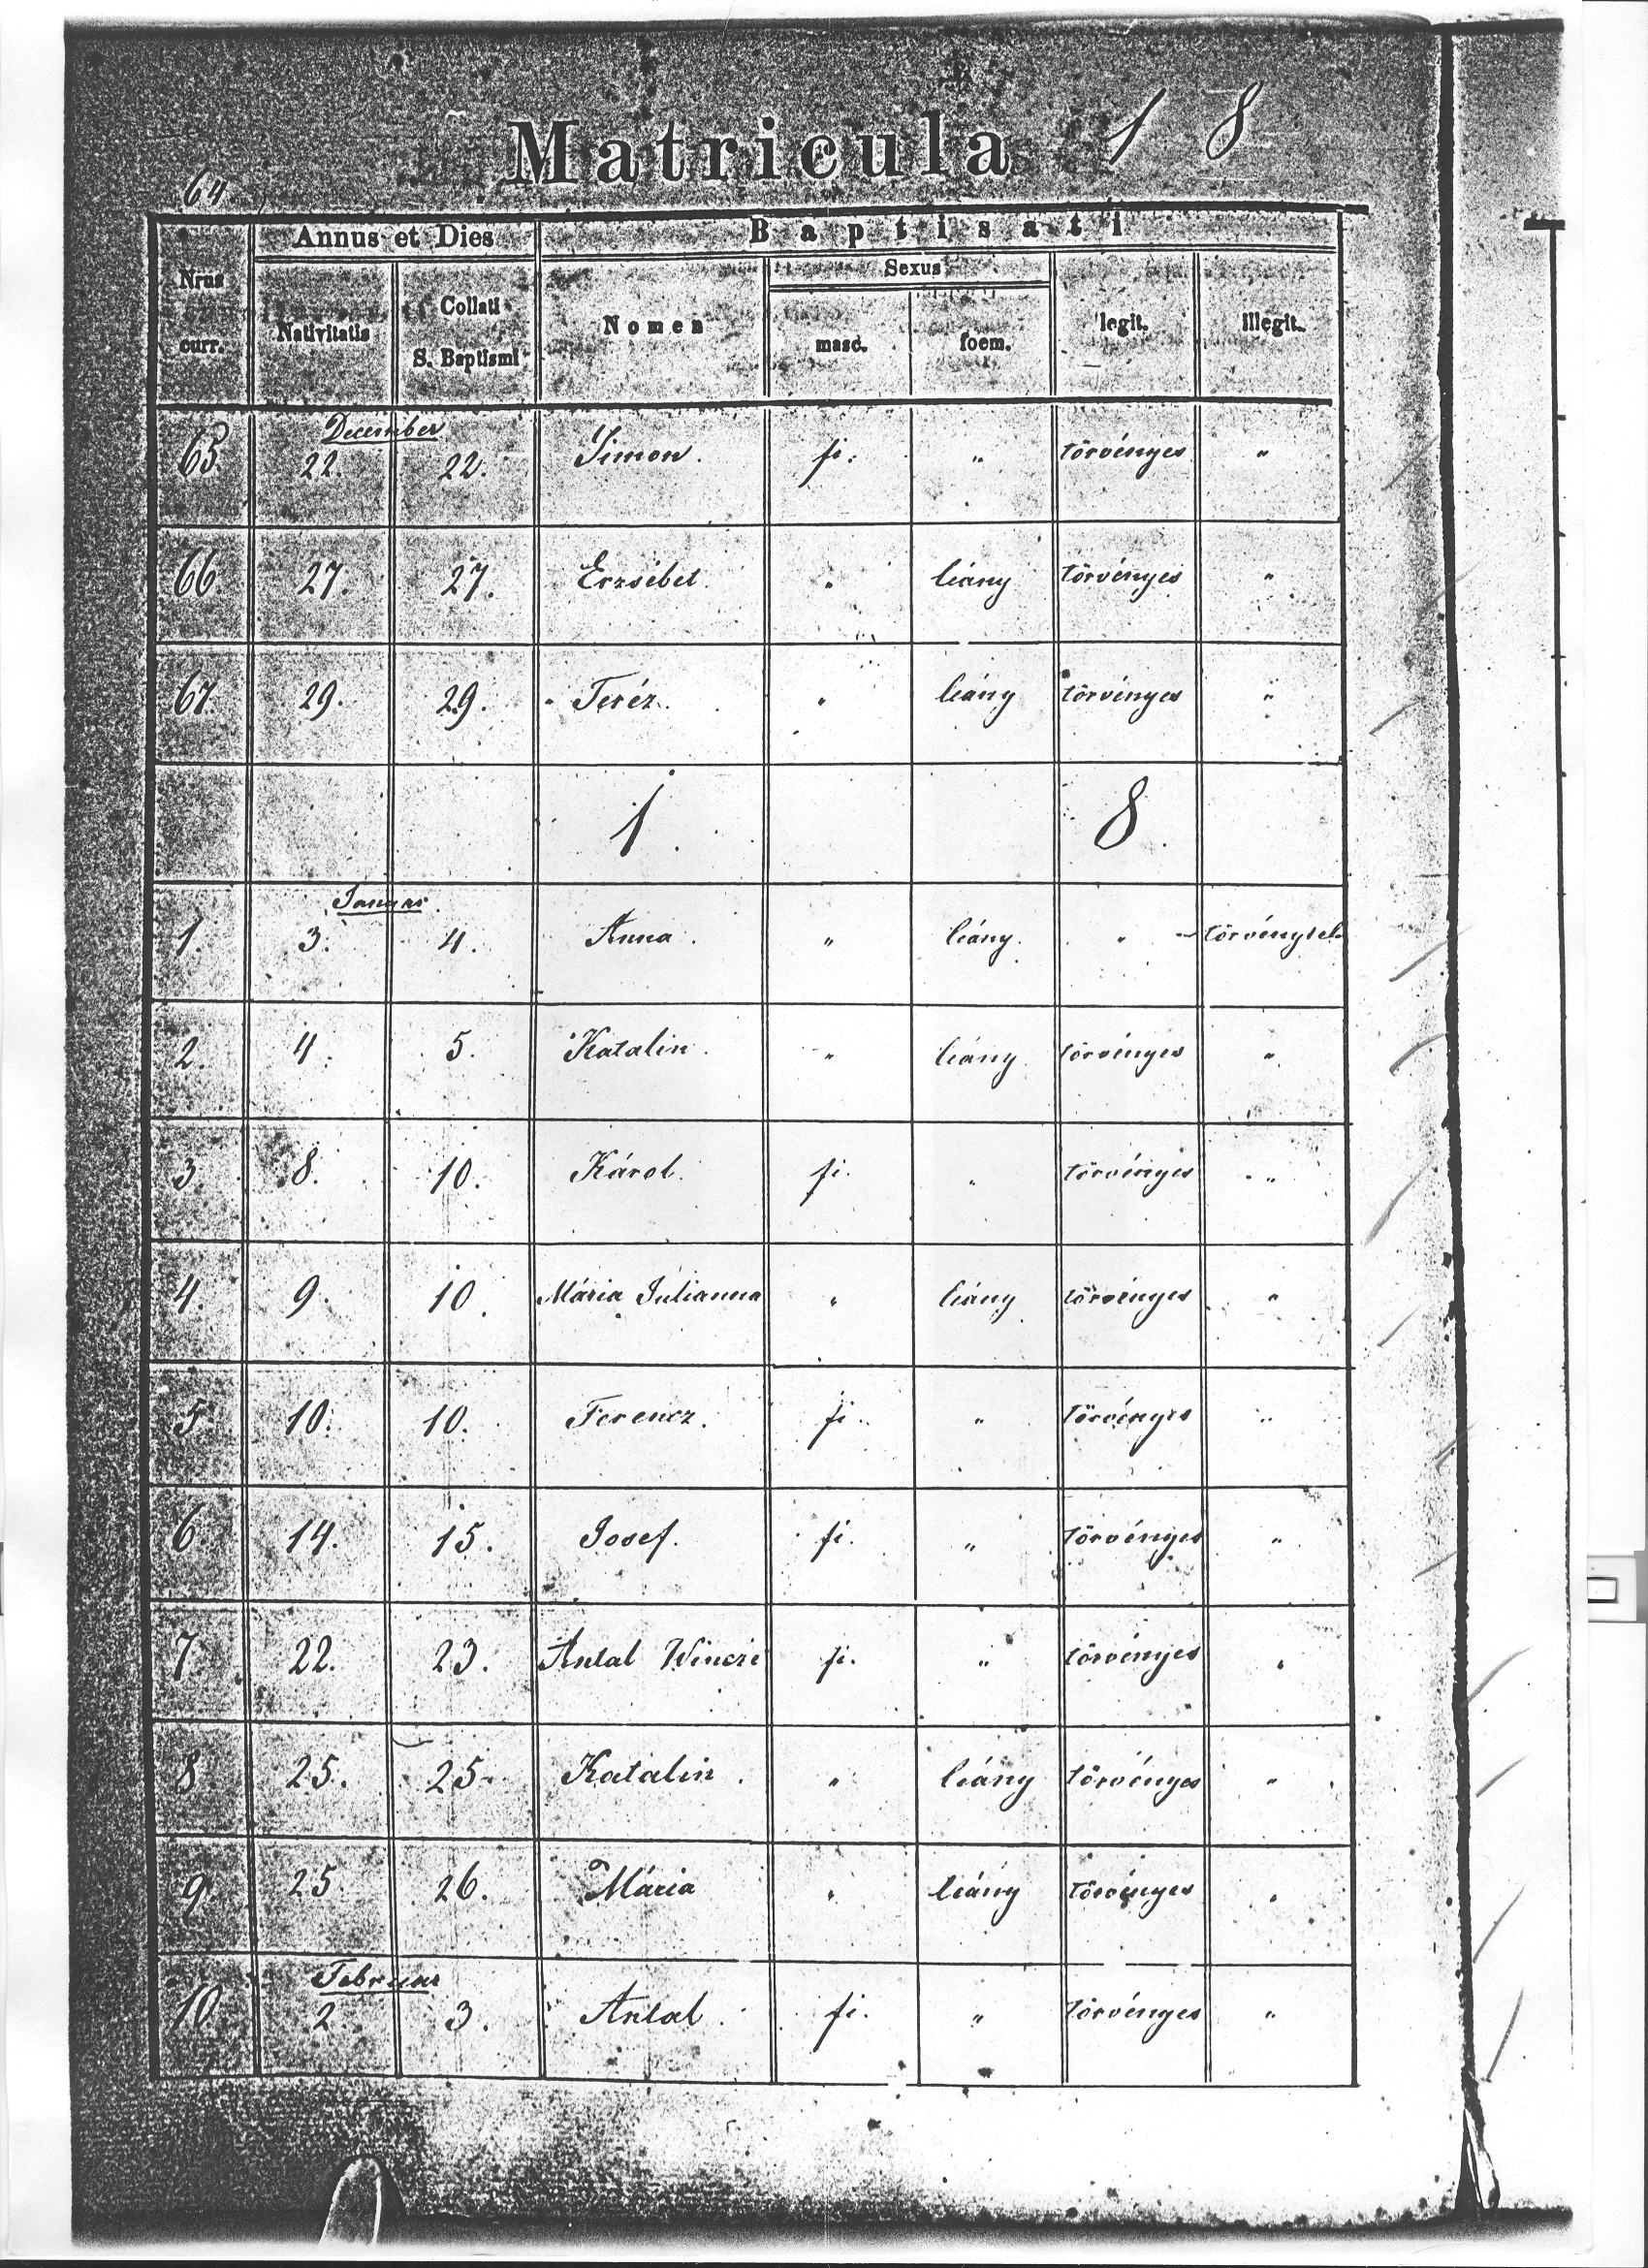 Matricula 1 8
64
Annus et Dies Baptisati
Nrus curr. Nativitatis Collati S. Baptismi Nomen Sexus masc. foem. legit. illegit.
December
65 22. 22. Simon. fi. „ törvényes „
66. 27. 27. Erzsébet. „ leány törvényes „
67. 29. 29. Teréz. „ leány törvényes „
1 8
Januar
1. 3. 4. Anna. „ leány. „ törvénytel.
2. 4. 5. Katalin. „ leány törvényes „
3 8. 10. Károl. fi. „ törvényes „
4. 9. 10. Mária Julianna „ leány törvényes „
5. 10. 10. Ferencz. fi. „ törvényes „
6 14. 15. Josef. fi. „ törvényes „
7 22. 23. Antal Winczi fi. „ törvényes „
8 25. 25. Katalin. „ leány törvényes „
9. 25. 26. Mária „ leány törvényes „
Februar
10. 2. 3. Antal. fi. „ törvényes „